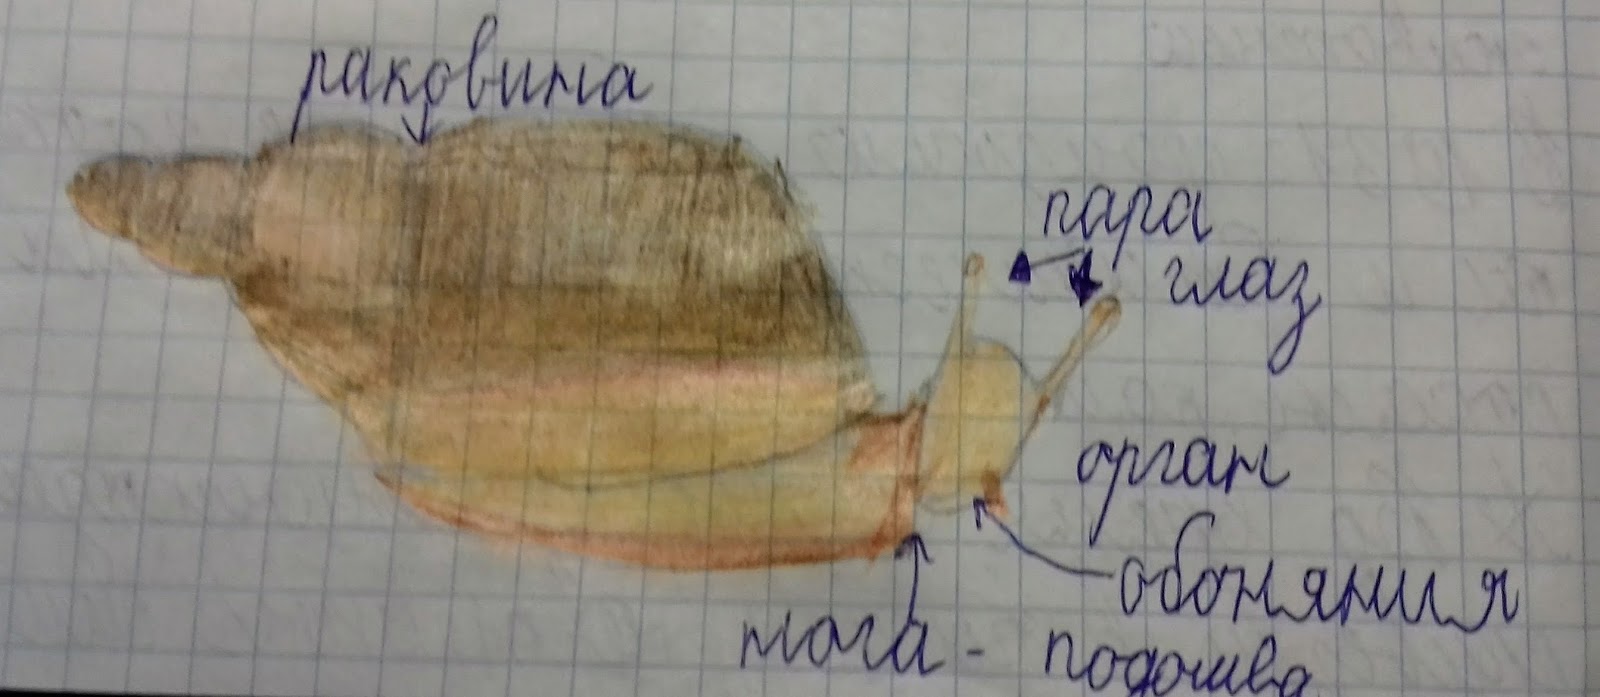 раковина
пара
глаз
орган
обоняния
нога - подошва